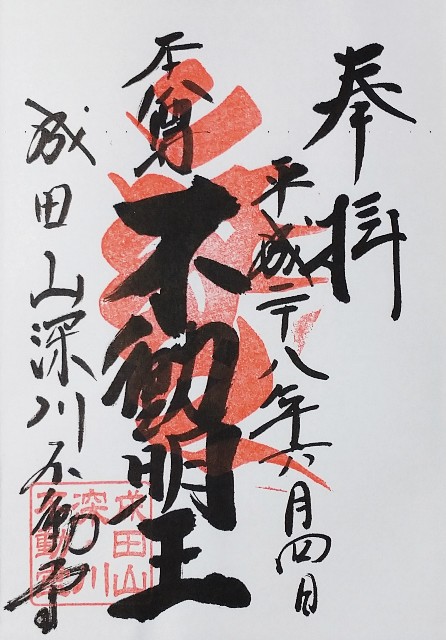 奉拝
平成二十八年六月四日
本尊
不動明王
成田山深川不動寺
成田山
深川
不動堂